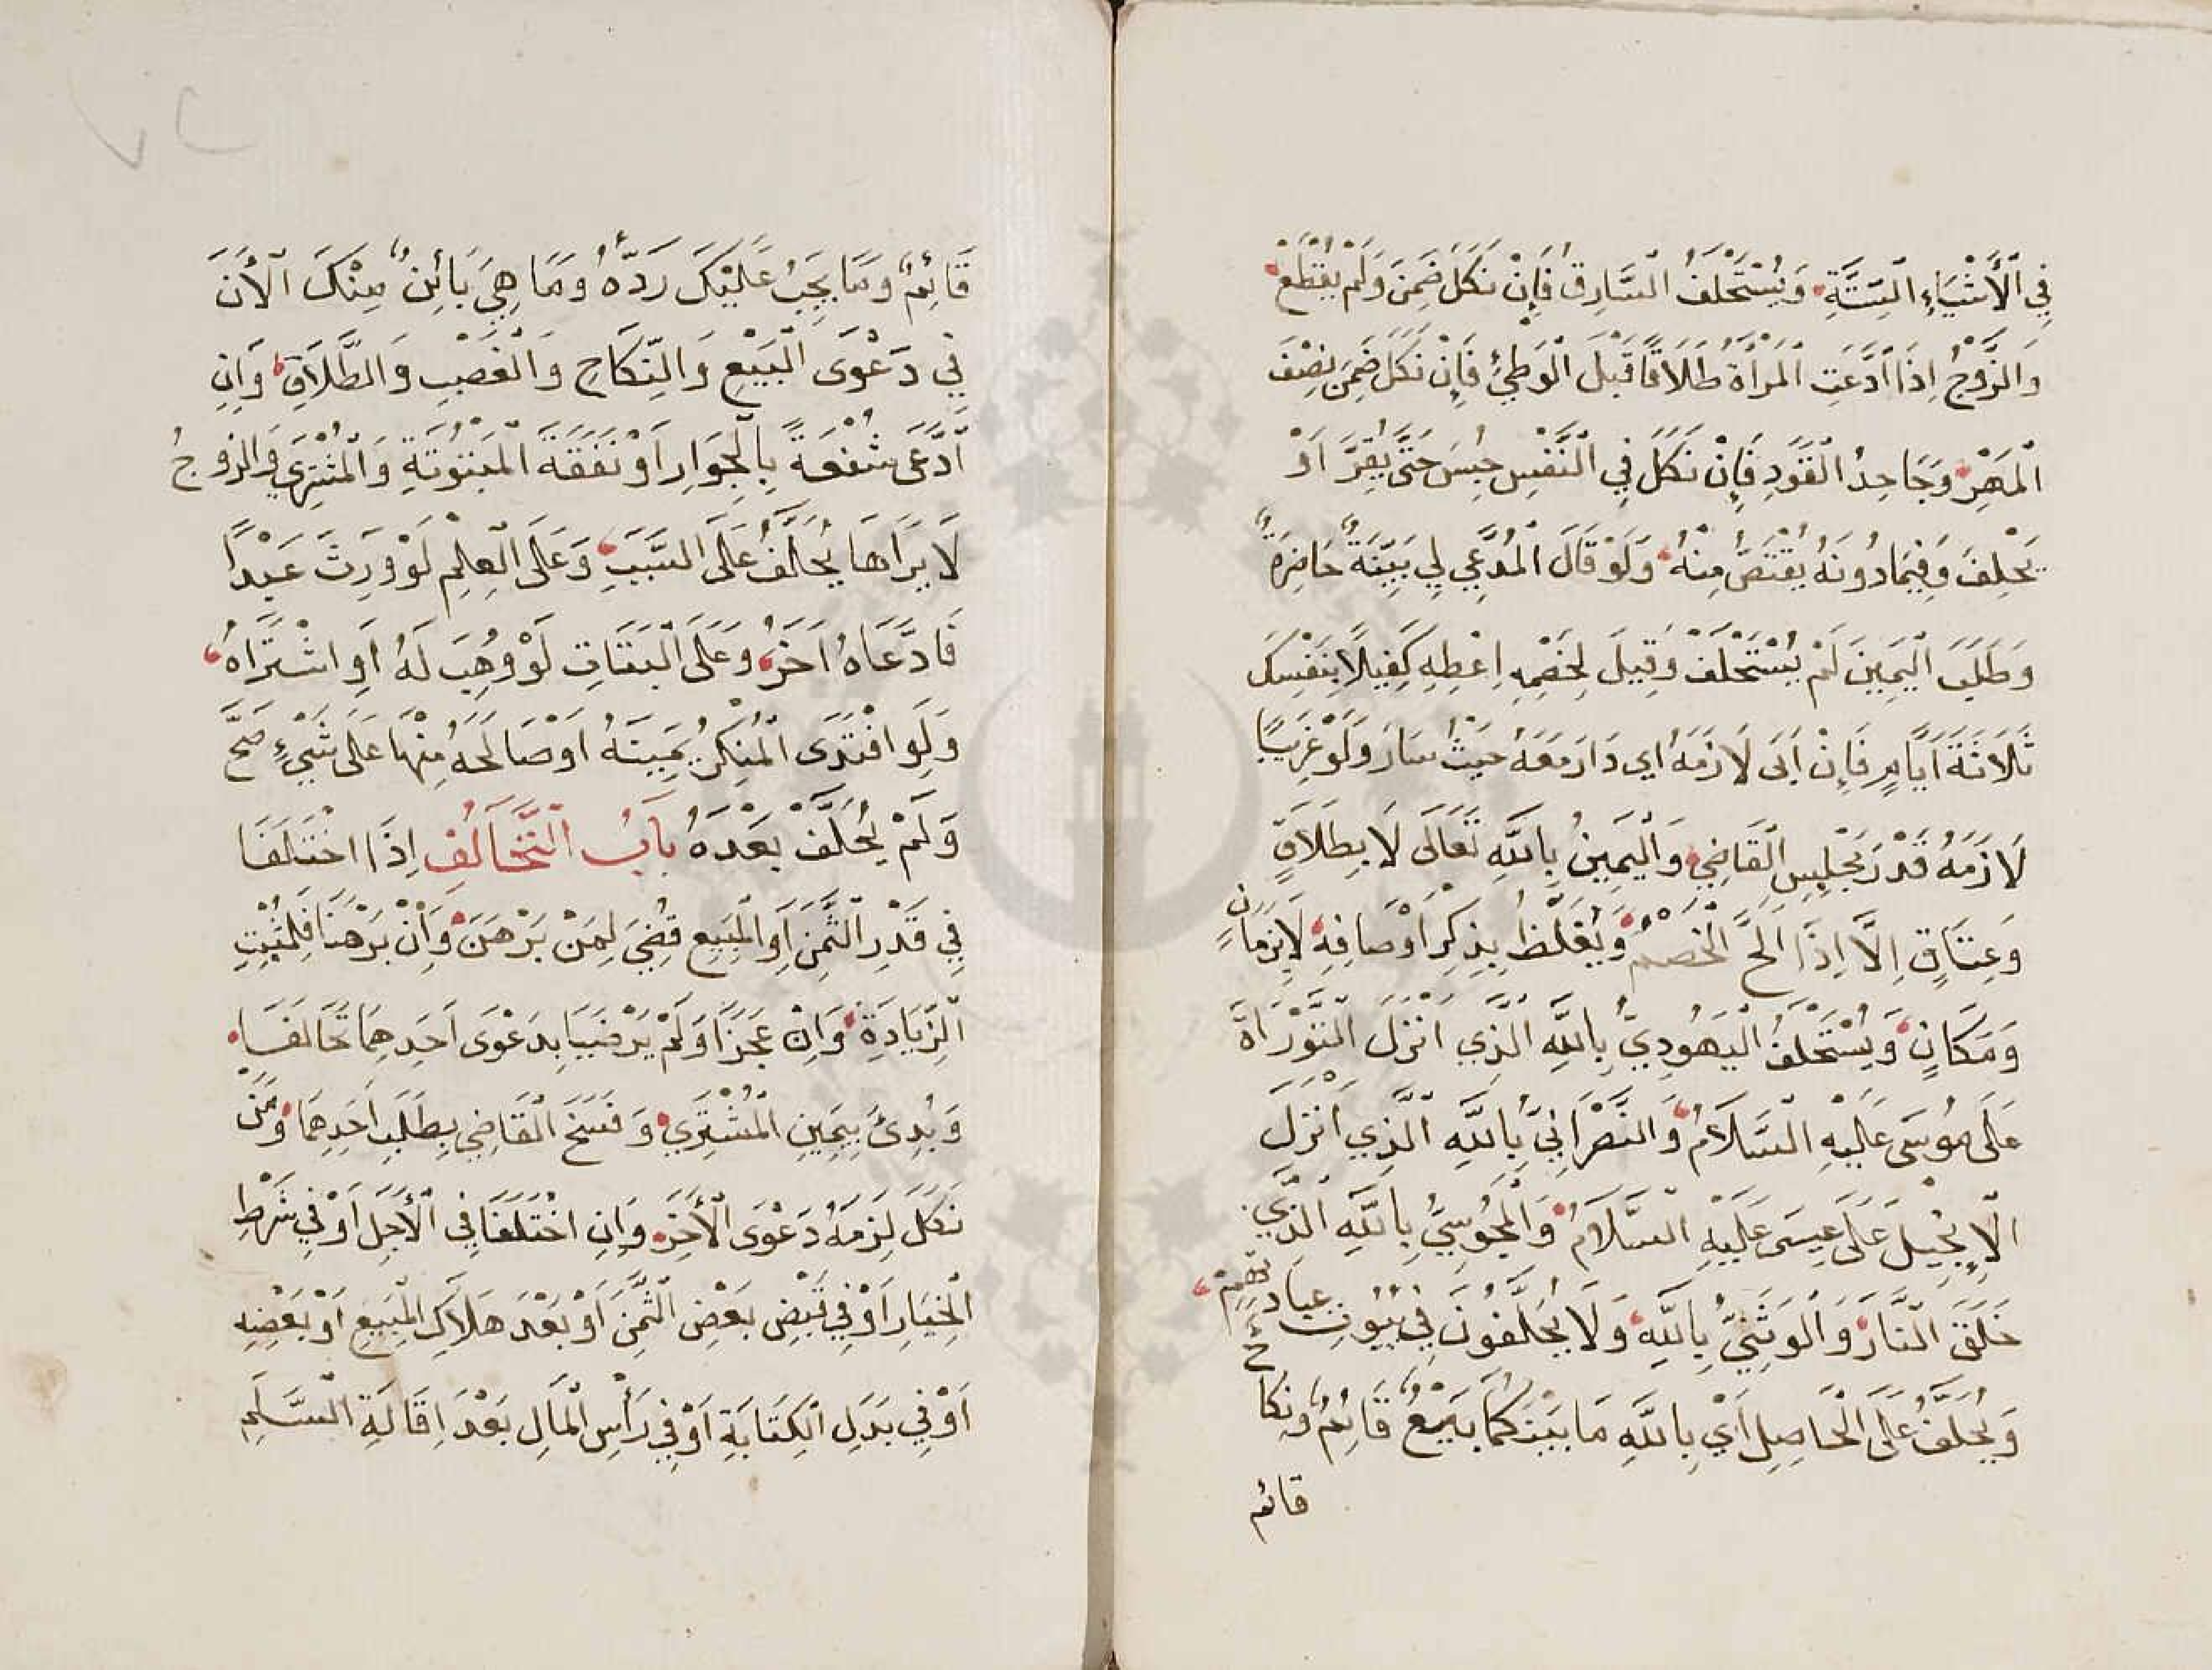 فِي الْأَشْيَاءِ السِّتَّةِ وَيُسْتَحْلَفُ السَّارِقُ فَإِنْ نَكَلَ ضَمِنَ وَلَمْ يُقْطَعْ
وَالزَّوْجُ اِذَا ادَّعَتِ الْمَرْأَةُ طَلَاقًا قَبْلَ الْوَطْئِ فَإِنْ نَكَلَ ضَمِنَ نِصْفَ
الْمَهْرِ وَجَاحِدُ الْقَوَدِ فَإِنْ نَكَلَ فِي النَّفْسِ حُبِسَ حَتَّى يُقِرَّ اَوْ
يَحْلِفَ وَفِيمَا دُونَهُ يُقْتَصُّ مِنْهُ وَلَوْ قَالَ الْمُدَّعِي لِي بَيِّنَةٌ حَاضِرَةٌ
وَطَلَبَ الْيَمِينَ لَمْ يُسْتَحْلَفْ وَقِيلَ لِخَصْمِهِ اِعْطِهِ كَفِيلًا بِنَفْسِكَ
ثَلَاثَةَ اَيَّامٍ فَإِنْ اَبَى لَازَمَهُ اي دَارَ مَعَهُ حَيْثُ سَارَ وَلَوْ غَرِيبًا
لَازَمَهُ قَدْرَ مَجْلِسِ الْقَاضِي وَالْيَمِينُ بِاللَّهِ تَعَالَى لَا بِطَلَاقٍ
وَعِتَاقٍ اِلَّا اِذَا اَلَحَّ الْخَصْمُ وَيُغَلَّظُ بِذِكْرِ اَوْصَافِهِ لَا بِزَمَانٍ
وَمَكَانٍ وَيُسْتَحْلَفُ الْيَهُودِيُّ بِاللَّهِ الَّذِي اَنْزَلَ التَّوْرَاةَ
عَلَى مُوسَى عَلَيْهِ السَّلَامُ وَالنَّصْرَانِيُّ بِاللَّهِ الَّذِي اَنْزَلَ
الْإِنْجِيلَ عَلَى عِيسَى عَلَيْهِ السَّلَامُ وَالْمَجُوسِيُّ بِاللَّهِ الَّذِي
خَلَقَ النَّارَ وَالْوَثَنِيُّ بِاللَّهِ وَلَا يُحَلَّفُونَ فِي بُيُوتِ عِبَادَتِهِمْ
وَيُحَلَّفُ عَلَى الْحَاصِلِ اَيْ بِاللَّهِ مَا بَيْنَكُمَا بَيْعٌ قَائِمٌ وَنِكَاحٌ
قائم
قَائِمٌ وَمَا يَجِبُ عَلَيْكَ رَدُّهُ وَمَا هِيَ بَائِنٌ مِنْكَ الْأَنَ
فِي دَعْوَى الْبَيْعِ وَالنِّكَاحِ وَالْغَصْبِ وَالطَّلَاقِ وَاِنِ
ادَّعَى شُفْعَةً بِالْجِوَارِ اَوْ نَفَقَةَ الْمَبْتُوتَةِ وَالْمُشْتَرِي وَالزَّوْجُ
لَا يَرَاهَا يُحَلَّفُ عَلَى السَّبَبِ وَعَلَى الْعِلْمِ لَوْ وَرِثَ عَبْدًا
فَادَّعَاهُ اَخَرُ وَعَلَى الْبَتَاتِ لَوْ وُهِبَ لَهُ اَوِ اشْتَرَاهُ
وَلَوِ افْتَدَى الْمُنْكِرُ يَمِينَهُ اَوْ صَالَحَهُ مِنْهَا عَلَى شَيْءٍ صَحَّ
وَلَمْ يُحَلَّفْ بَعْدَهُ بَابُ التَّحَالُفِ اِذَا اخْتَلَفَا
فِي قَدْرِ الثَّمَنِ اَوِ الْمَبِيعِ قُضِيَ لِمَنْ بَرْهَنَ وَاِنْ بَرْهَنَا فَلِمُثْبِتِ
الزِّيَادَةِ وَاِنْ عَجَزَا وَلَمْ يَرْضَيَا بِدَعْوَى اَحَدِهِمَا تَحَالَفَا
وَبُدِئَ بِيَمِينِ الْمُشْتَرِي وَفَسَخَ الْقَاضِي بِطَلَبِ اَحَدِهِمَا وَمَنْ
نَكَلَ لَزِمَهُ دَعْوَى الْأَخَرِ وَاِنِ اخْتَلَفَا فِي الْأَجَلِ اَوْ فِي شَرْطِ
الْخِيَارِ اَوْ فِي قَبْضِ بَعْضِ الثَّمَنِ اَوْ بَعْدَ هَلَاكِ الْمَبِيعِ اَوْ بَعْضِهِ
اَوْ فِي بَدَلِ الْكِتَابَةِ اَوْ فِي رَأْسِ الْمَالِ بَعْدَ اِقَالَةِ السَّلَمِ